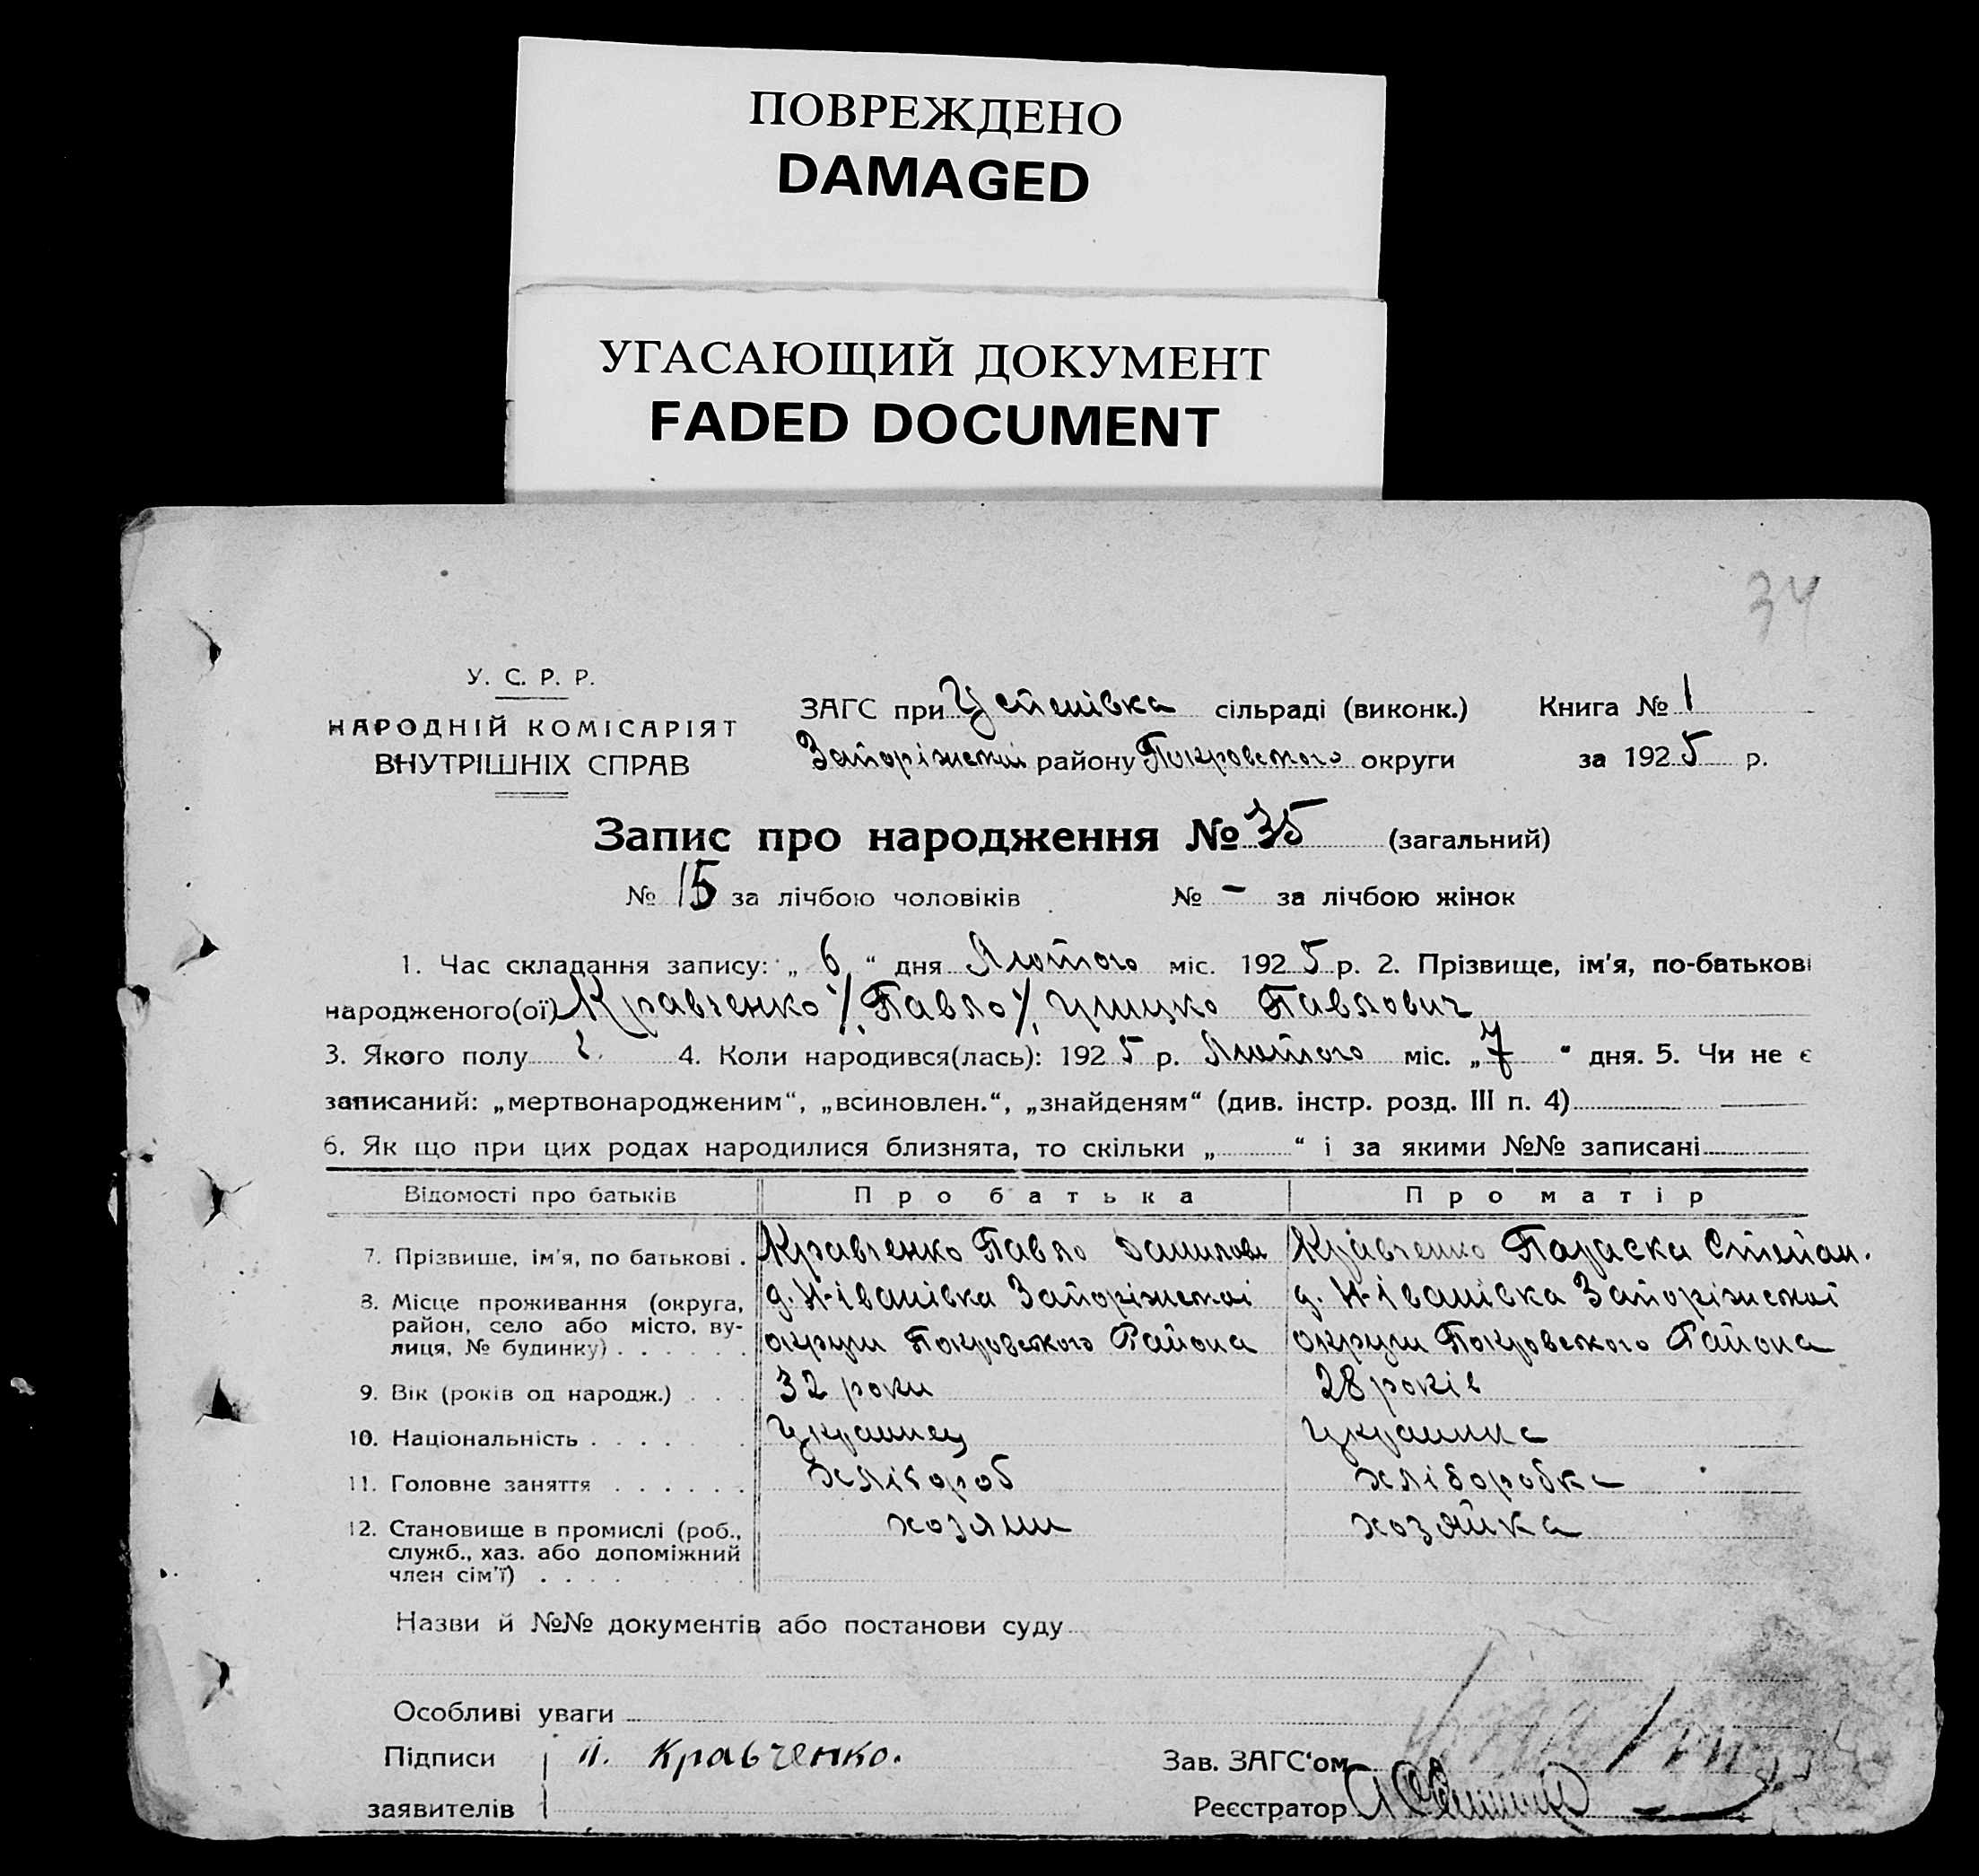 ПОВРЕЖДЕНО
DAMAGED
УГАСАЮЩИЙ ДОКУМЕНТ
FADED DOCUMENT
34
У. С. Р. Р.
НАРОДНІЙ КОМІСАРІЯТ
ВНУТРІШНІХ СПРАВ
ЗАГС при Успенівка сільраді (виконк.) Книга № 1
Запоріжскої району Покровського округи за 1925 р.
Запис про народження № 35 (загальний)
№ 15 за лічбою чоловіків № – за лічбою жінок
1. Час складання запису: „ 6 “ дня Лютого міс. 1925 р. 2. Прізвище, ім'я, по-батькові
народженого(ої) Кравченко /Павло/ Павлович
3. Якого полу ч. 4. Коли народився(лась): 1925 р. Лютого міс. „ 7 “ дня. 5. Чи не є
записаний: „мертвонародженим“, „всиновлен.“, „знайденям“ (див. інстр. розд. III п. 4)
6. Як що при цих родах народилися близнята, то скільки „ “ і за якими №№ записані
Відомості про батьків Про батька Про матір
7. Прізвище, ім'я, по батькові . Кравченко Павло Данилов Кравченко Параска Степан.
8. Місце проживання (округа, район, село або місто, вулиця, № будинку) . . . . . .
д. Н-Іванівка Запоріжскої д. Н-Іванівка Запоріжскої
округи Покровского Района округи Покровского Района
9. Вік (років од народж.) . . . 32 роки 28 років
10. Національність . . . . . . Украинец Украинка
11. Головне заняття . . . . . . хлібороб хліборобка
12. Становище в промислі (роб., служб., хаз. або допоміжний член сім'ї) . . . . хозяин хозяйка
Назви й №№ документів або постанови суду
Особливі уваги
Підписи П. Кравченко. Зав. ЗАГС'ом
заявителів Реєстратор